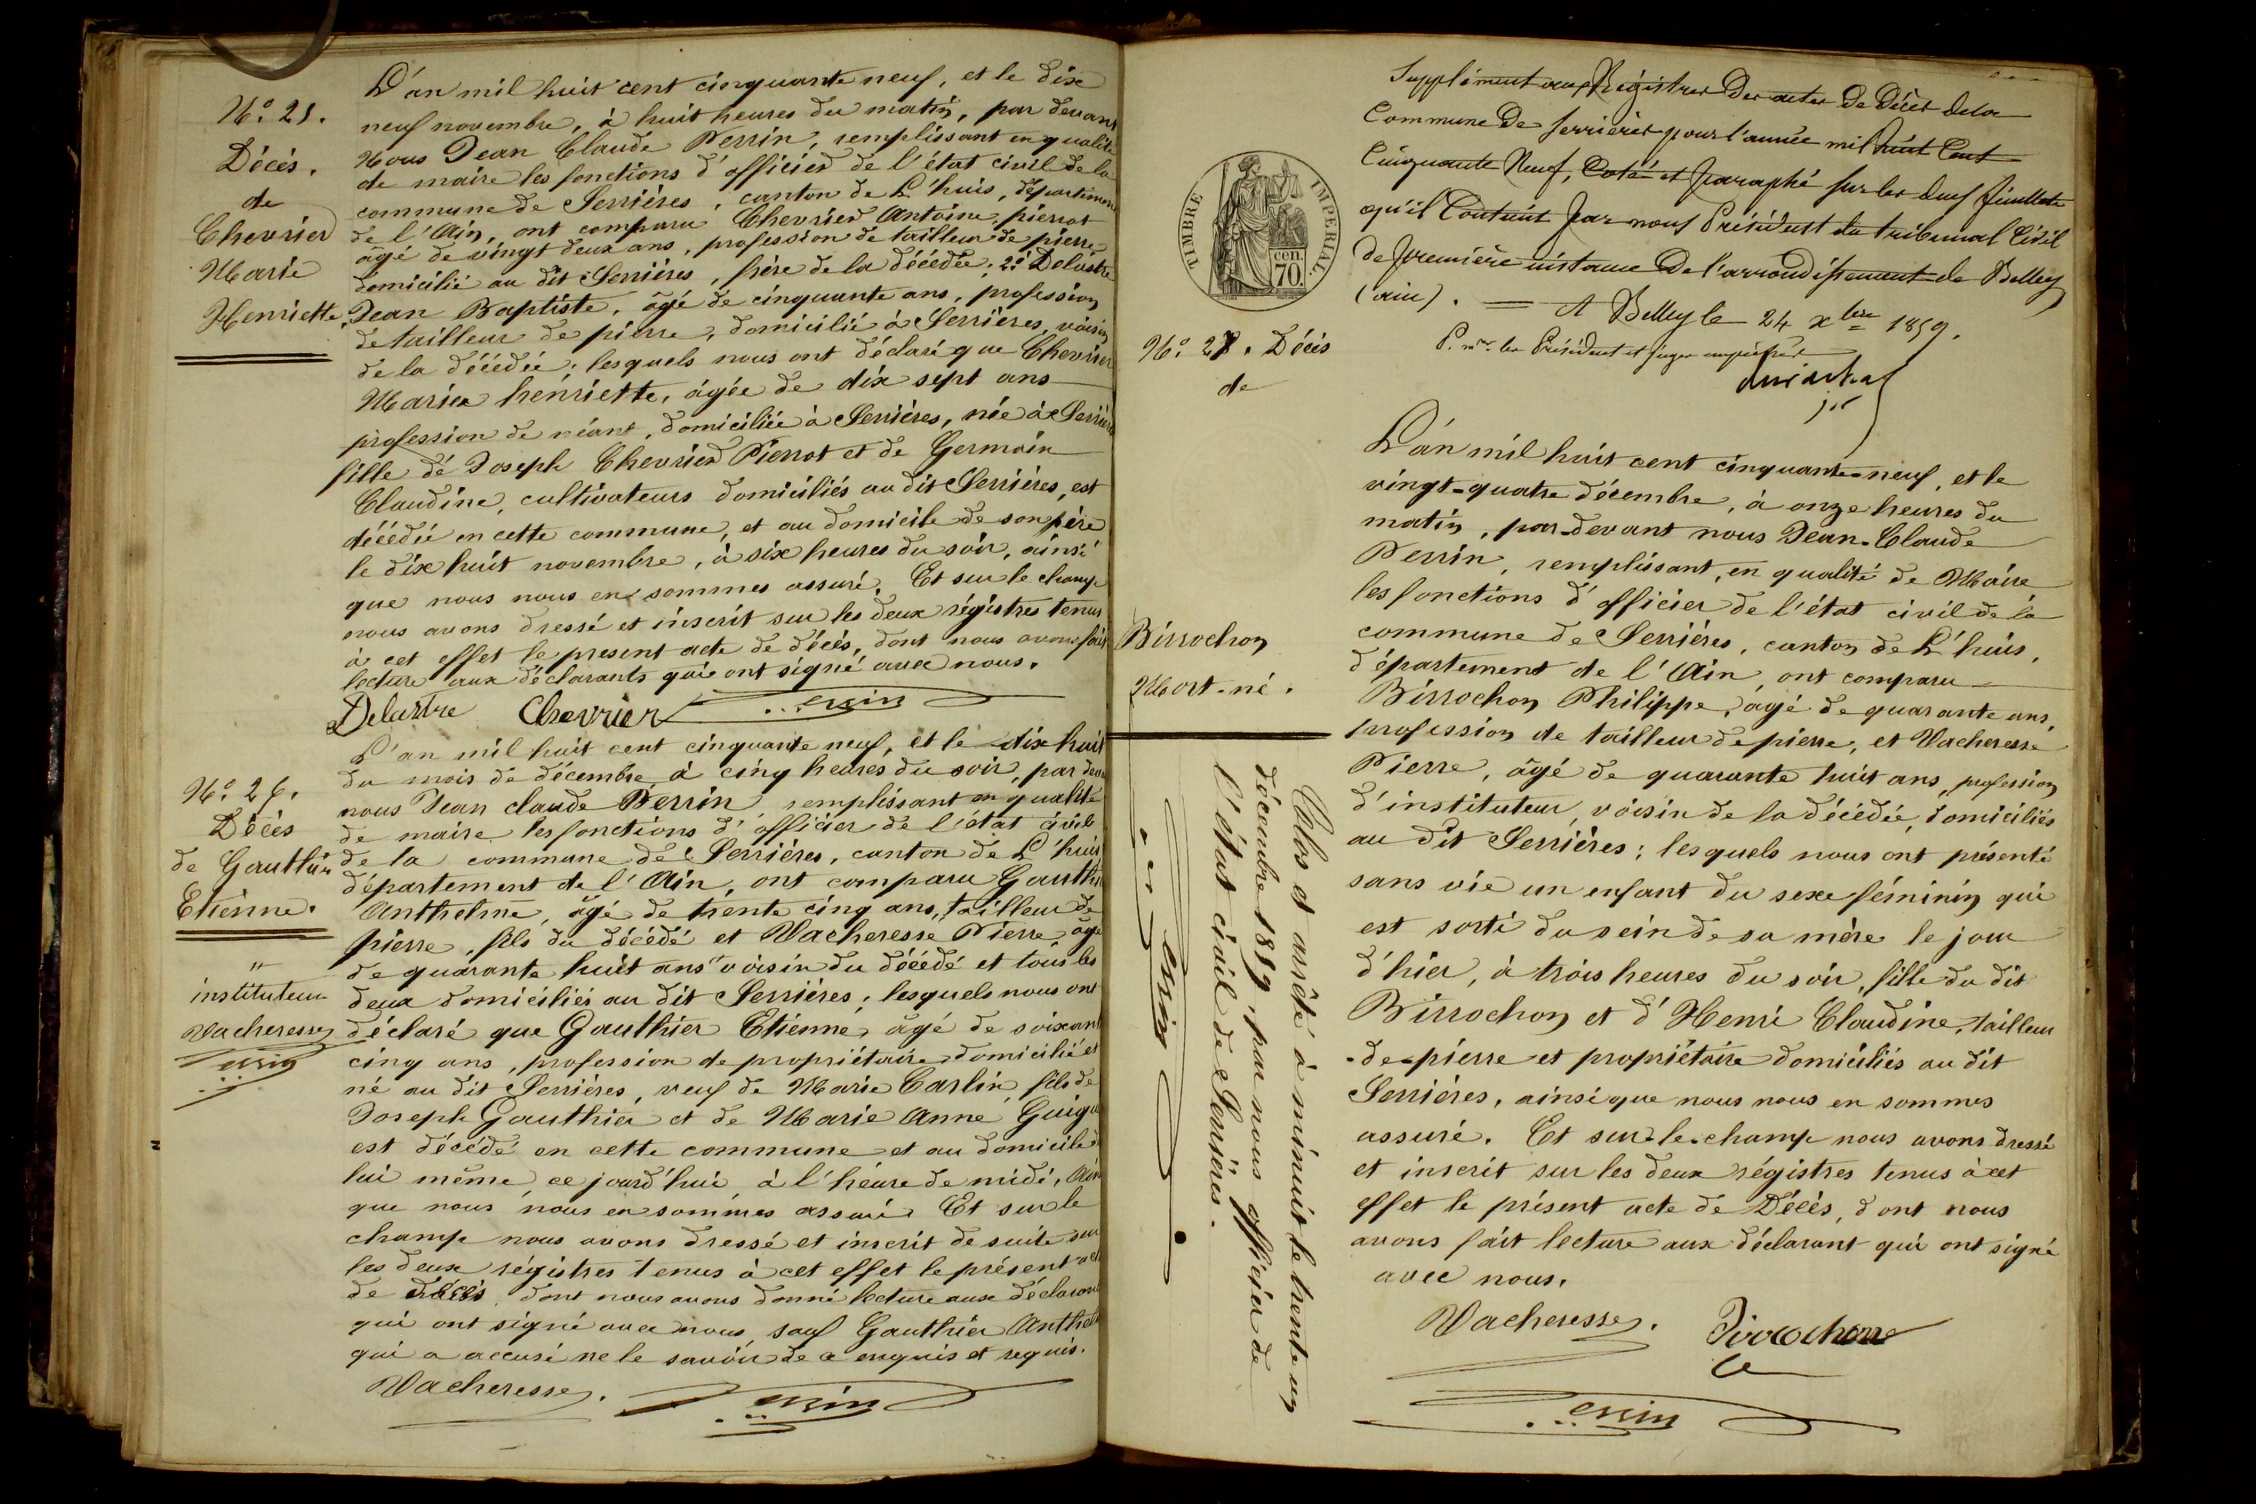 N.° 25.
Décès.
de
Chevrier
Marie
Henriette.
L'an mil huit cent cinquante neuf, et le dix
neuf novembre, à huit heures du matin, par devant
Nous Jean Claude Perrin, remplissant en qualité
de maire les fonctions d'officier de l'état civil de la
commune de Serrières, canton de L'huis, département
de l'Ain, ont comparu Chevrier Antoine, pierrot
âgé de vingt deux ans, profession de tailleur de pierre
domicilié au dit Serrières, frère de la décédée, 2° Delastre
Jean Baptiste, âgé de cinquante ans, profession
de tailleur de pierre, domicilié à Serrières, voisin
de la décédée; lesquels nous ont déclaré que Chevrier
Marie henriette, âgée de dix sept ans
profession de néant, domiciliée à Serrières, née à Serrières
fille de Joseph Chevrier Pierrot et de Germain
Claudine, cultivateurs domiciliés au dit Serrières, est
décédée en cette commune, et au domicile de son père
le dix huit novembre, à six heures du soir, ainsi
que nous nous en sommes assuré. Et sur le champ
nous avons dressé et inscrit sur les deux régistres tenus
à cet effet le present acte de décès, dont nous avons fait
lecture aux déclarants qui ont signé avec nous.
Delastre Chevrier Perrin
N.° 26.
Décès
de Gauthier
Etienne.
"
instituteur
Vacheresse
Perrin
L'an mil huit cent cinquante neuf, et le dix huit
du mois de décembre à cinq heures du soir, par devant
nous Jean claude Perrin remplissant en qualité
de maire les fonctions d'officier de l'état civil
de la commune de Serrières, canton de L'huis
département de l'Ain, ont comparu Gauthier
Anthelme, âgé de trente cinq ans, tailleur de
pierre, fils du décédé et Vacheresse Pierre, âgé
de quarante huit ans " voisin du décédé et tous les
deux domiciliés au dit Serrières; lesquels nous ont
déclaré que Gauthier Etienne, âgé de soixante
cinq ans, profession de propriétaire domicilié et
né au dit Serrières, veuf de Marie Carlin, fils de
Joseph Gauthier et de Marie Anne Guigu
est décédé en cette commune et au domicile de
lui même, ce jourd'hui, à l'heure de midi, Ainsi
que nous nous en sommes assuré. Et sur le
champ nous avons dressé et inscrit de suite sur
les deux régistres tenus à cet effet le présent acte
de décès, dont nous avons donné lecture aux déclarants
qui ont signé avec nous, sauf Gauthier Anthelme
qui a accusé ne le savoir de ce enquis et requis.
Vacheresse. Perrin
TIMBRE IMPERIAL.
70 cen.
Supplément aux Régistres Des actes De Décès de la
Commune De Serrières pour l'année mil huit Cent
Cinquante Neuf, Coté et paraphé sur les deux feuillets
qu'il Contient par nous Président du tribunal Civil
de première instance De l'arrondissement de Belley
(ain). A Belley le 24 xbre 1859.
P. mr. les Président et juges empêchés
N.° 27. Décès
de
Birrochon
Mort-né.
L'an mil huit cent cinquante-neuf, et le
vingt-quatre décembre, à onze heures du
matin, par-devant nous Jean-Claude
Perrin, remplissant, en qualité de Maire
les fonctions d'officier de l'état civil de la
commune de Serrières, canton de L'huis,
département de l'Ain, ont comparu
Birrochon Philippe, âgé de quarante ans,
profession de tailleur de pierre, et Vacheresse
Pierre, âgé de quarante huit ans, profession
d'instituteur, voisin de la décédée, domiciliés
au dit Serrières; lesquels nous ont présenté
sans vie un enfant du sexe féminin qui
est sorti du sein de sa mère le jour
d'hier, à trois heures du soir, fille du dit
Birrochon et d'Henri Claudine, tailleur
de-pierre et propriétaire domiciliés au dit
Serrières, ainsi que nous nous en sommes
assuré. Et sur-le-champ nous avons dressé
et inscrit sur les deux régistres tenus à cet
effet le présent acte de Décès, dont nous
avons fait lecture aux déclarant qui ont signé
avec nous.
Vacheresse. Pirrochon
Perrin
Clos et arrêté à minuit le trente un
décembre 1859, par nous officier de
l'état civil de Serrières.
Perrin